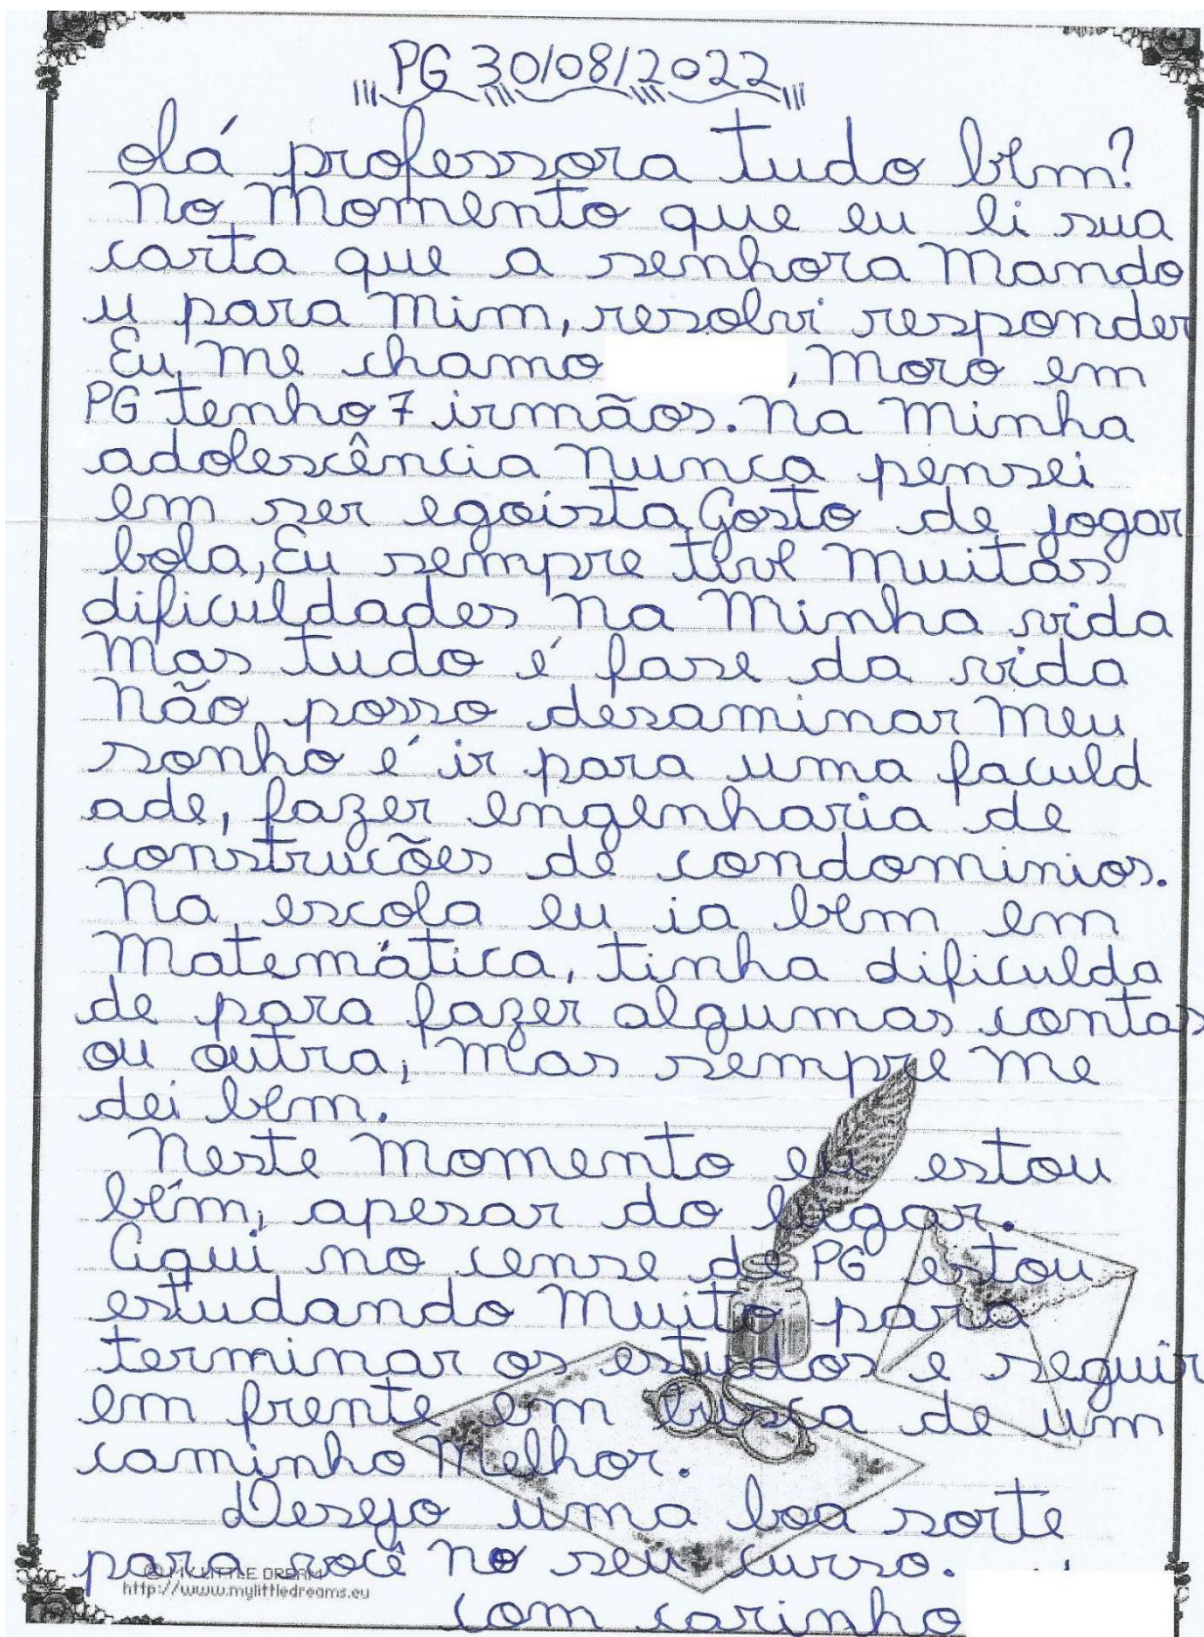 PG 30/08/2022
olá professora tudo bem?
No Momento que eu li sua
carta que a senhora Mando
u para Mim, resolvi responder
Eu, me chamo , Moro em
PG tenho 7 irmãos. Na Minha
adolescência Nunca pensei
em ser egoista, Gosto de jogar
bola, Eu sempre teve Muitas
dificuldades Na Minha vida
Mas tudo é fase da vida
Não, posso desaminar Meu
sonho é ir para uma faculd
ade, fazer engenharia de
construcões de condominios.
Na escola eu ia bem em
Matemática, tinha dificulda
de para fazer algumas contas
ou outra, Mas sempre Me
dei bem.
Neste Momento eu estou
bém, apesar do lugar.
Aqui no cense de PG estou
estudando Muito para
terminar os estudos e seguir
em frente em busca de um
caminho Melhor.
Desejo uma boa sorte
para você No seu curso.
© MY LITTLE DREAM
http://www.mylittledreams.eu
com carinho